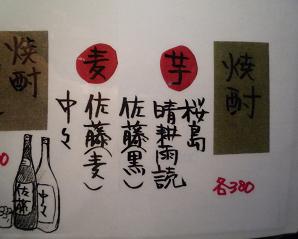 焼酎
各380
芋
桜島
晴耕雨読
佐藤(黒)
麦
佐藤(麦)
中々
焼酎
佐藤
中々